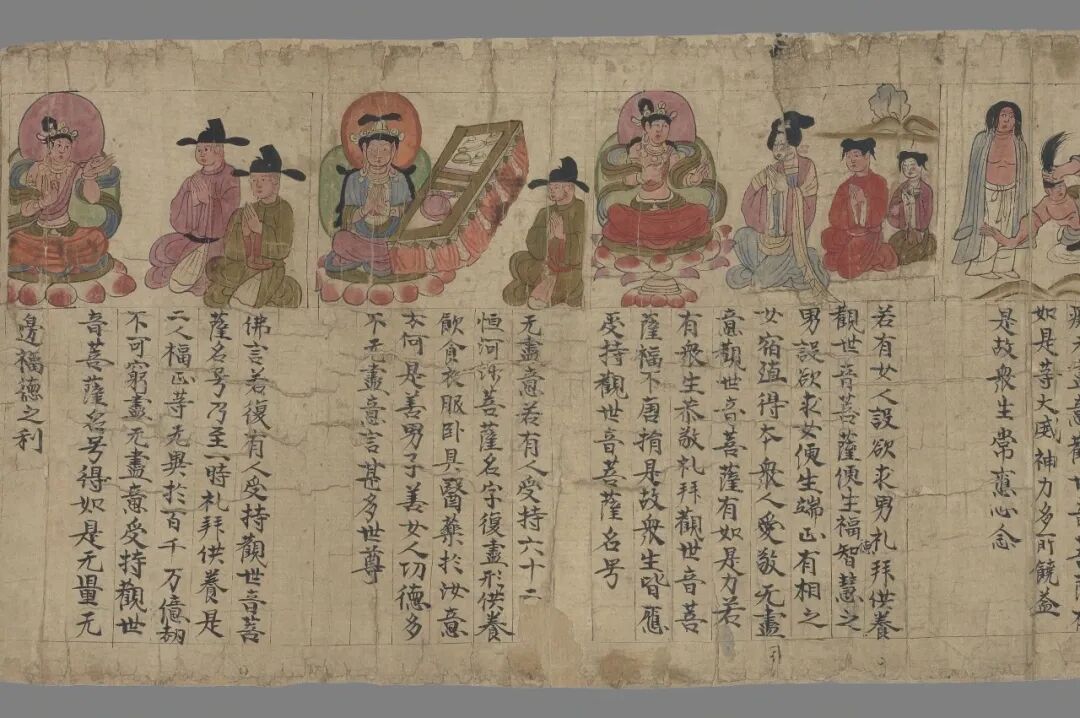 无盡意觀世音菩薩
如是等大威神力多所饒益
是故衆生常應心念
若有女人設欲求男礼拜供養
觀世音菩薩便生福智慧之
男設欲求女便生端正有相之
女宿殖得本衆人愛敬无盡
意觀世音菩薩有如是力若
有衆生恭敬礼拜觀世音菩
薩福不唐捐是故衆生皆應
受持觀世音菩薩名号
无盡意若有人受持六十二
恒河沙菩薩名字復盡形供養
飲食衣服卧具醫藥於汝意
云何是善男子善女人功德多
不无盡意言甚多世尊
佛言若復有人受持觀世音菩
薩名号乃至一時礼拜供養是
二人福正等无異於百千万億劫
不可窮盡无盡意受持觀世
音菩薩名号得如是无量无
邊福德之利